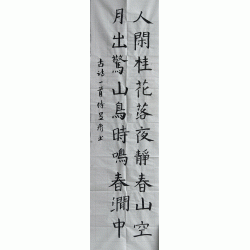 人閑桂花落夜靜春山空
月出驚山鳥時鳴春澗中
古詩一首